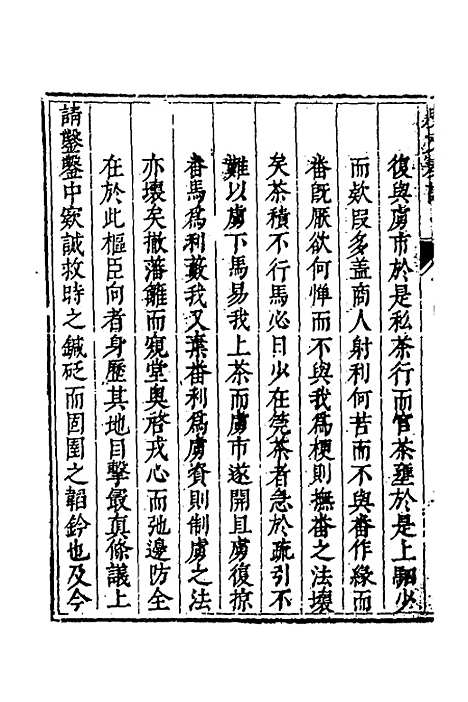 復與虜市於是私茶行而官茶壅於是上駟少
而欵段多盖商人射利何苦而不與番作緣而
番既厭欲何憚而不與我爲梗則撫番之法壞
矣茶積不行馬必日少在筦茶者急於疏引不
難以虜下馬易我上茶而虜市遂開且虜復掠
番馬爲利藪我又棄番利爲虜資則制虜之法
亦壞矣撤藩籬而窺堂奧啓戎心而弛邊防全
在於此樞臣向者身歷其地目擊最真條議上
請鑿鑿中窾誠救時之鍼砭而固圉之韜鈐也及今